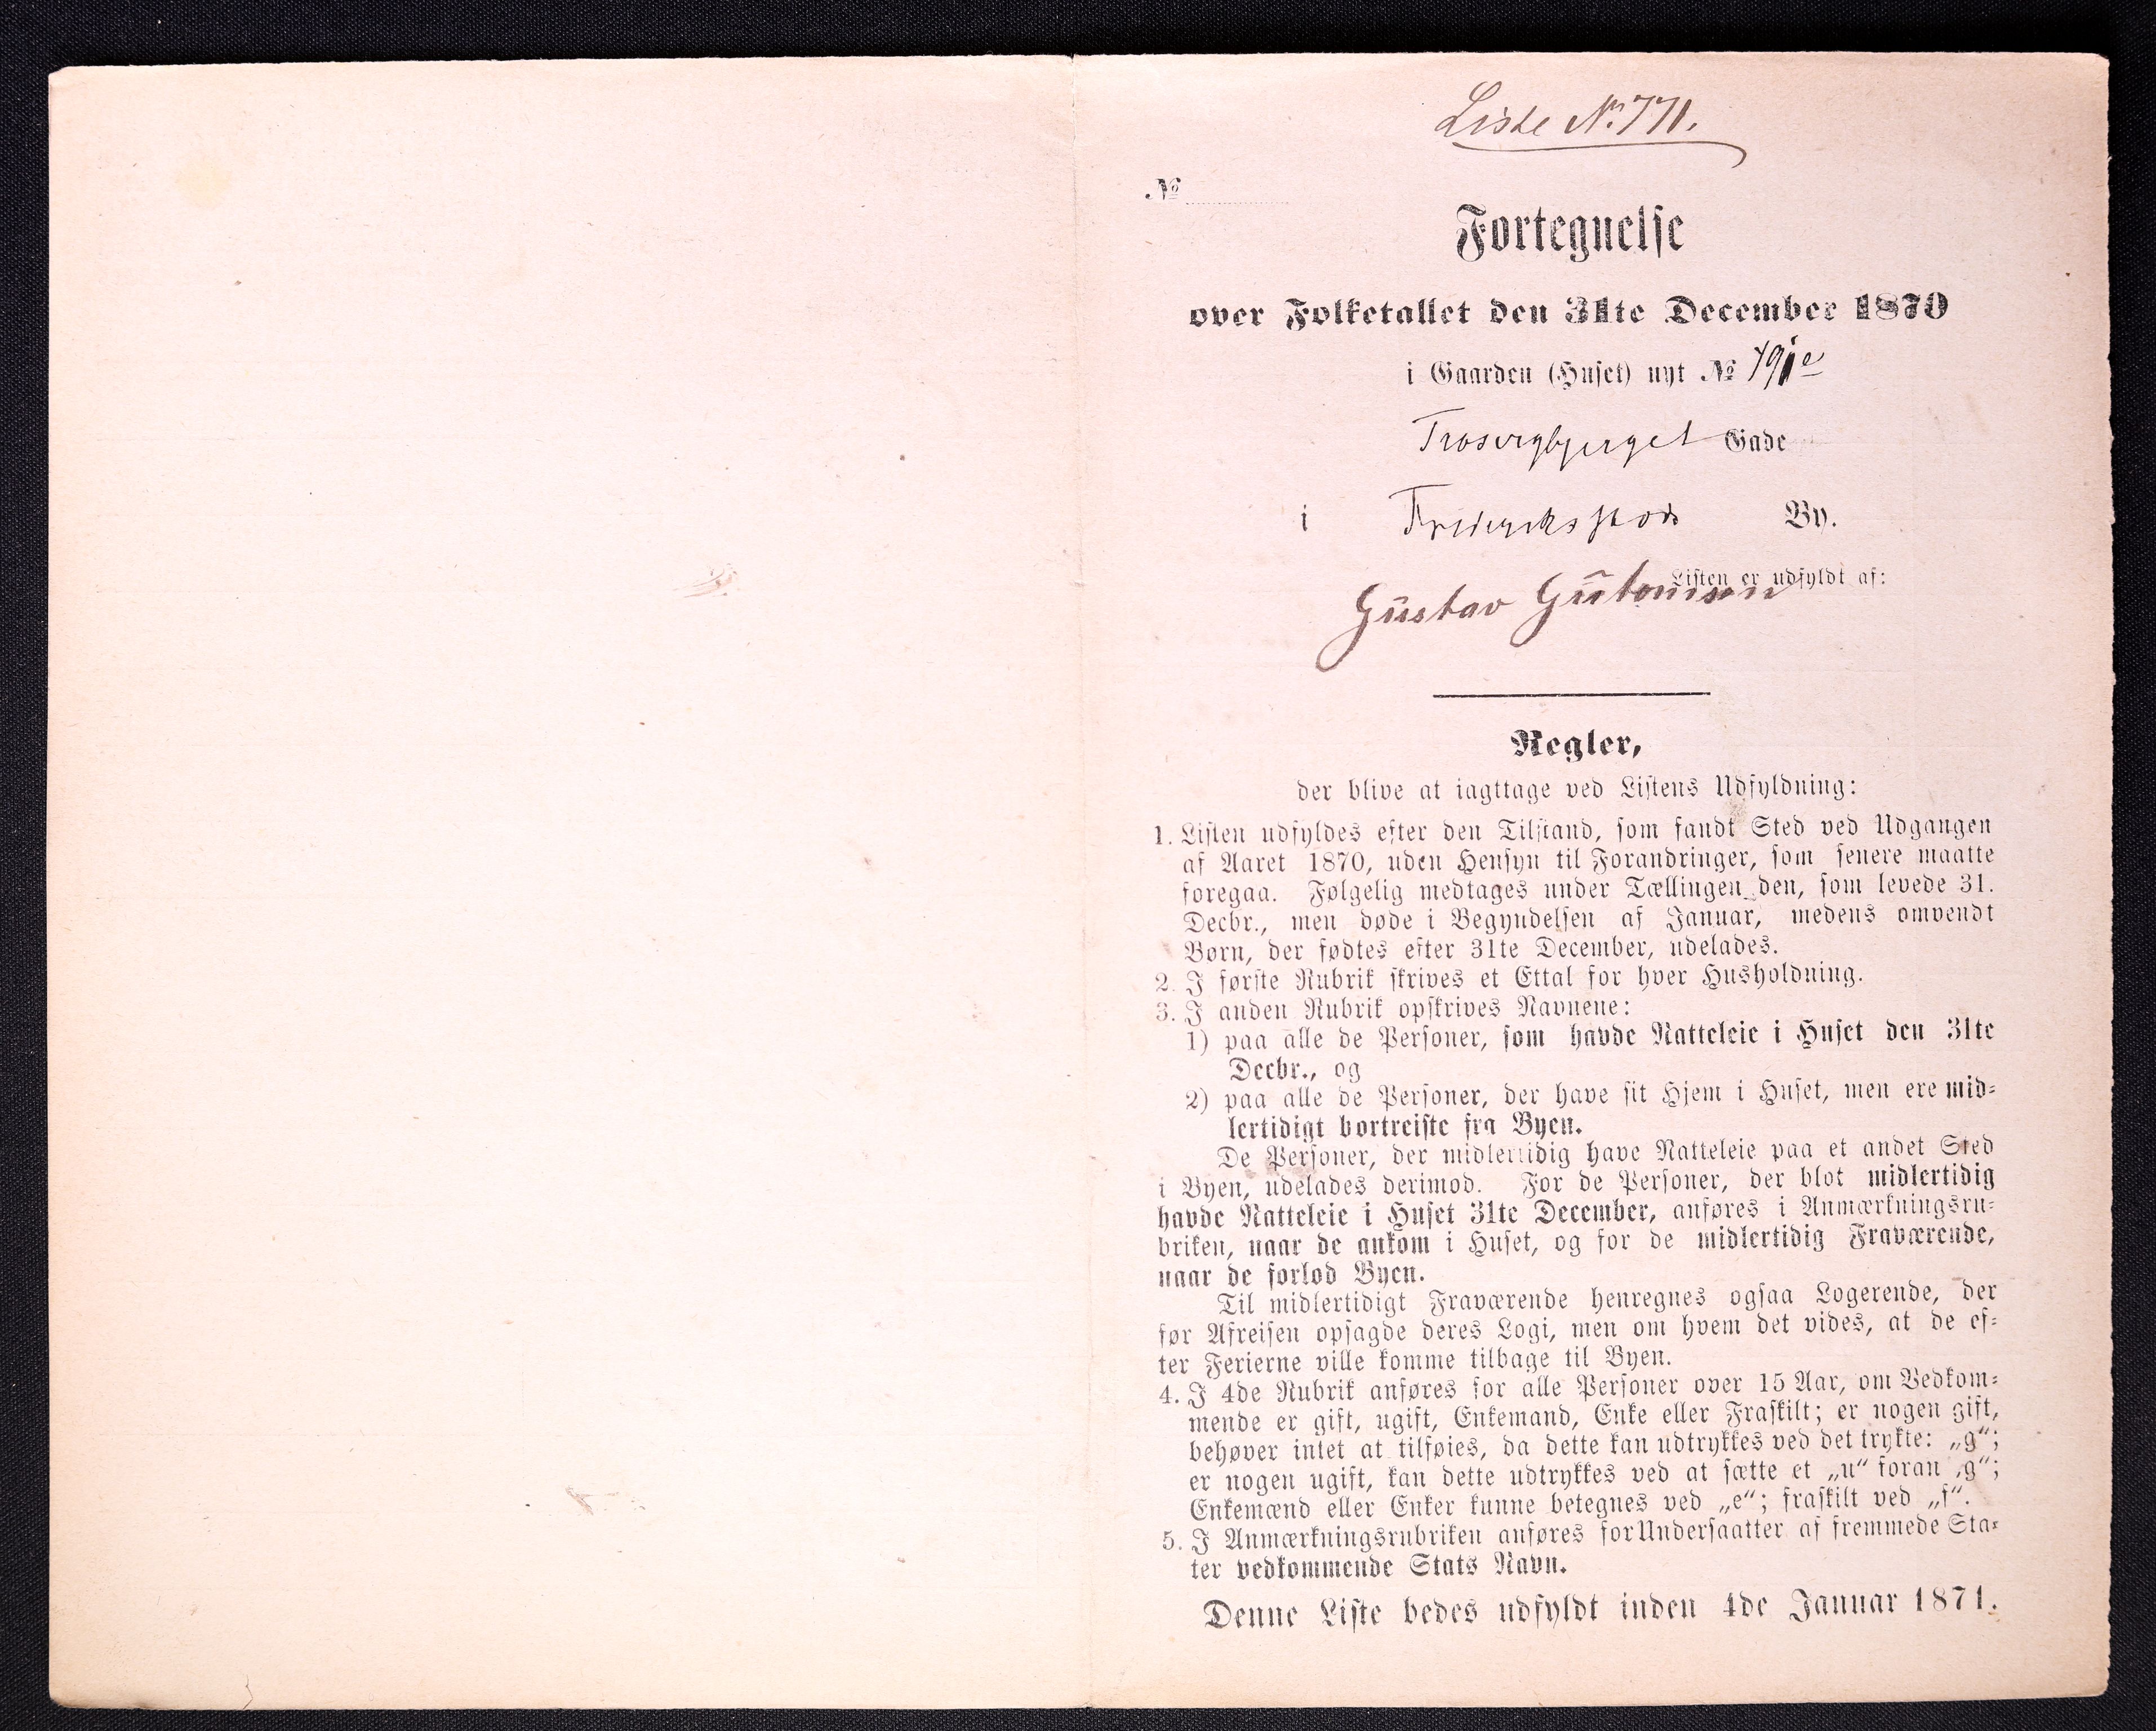 Liste No. 771.
№
Fortegnelse
over Folketallet den 31te December 1870
i Gaarden (Huset) nyt №
Gade
i By.
Listen er udfyldt af:
Gustav
Regler,
der blive at iagttage ved Listens Udfyldning:
1. Listen udfyldes efter den Tilstand, som fandt Sted ved Udgangen
af Aaret 1870, uden Hensyn til Forandringer, som senere maatte
foregaa. Følgelig medtages under Tællingen den, som levede 31.
Decbr., men døde i Begyndelsen af Januar, medens omvendt
Børn, der fødtes efter 31te December, udelades.
2. I første Rubrik skrives et Ettal for hver Husholdning.
3. I anden Rubrik opskrives Navnene:
1) paa alle de Personer, som havde Natteleie i Huset den 31te
Decbr., og
2) paa alle de Personer, der have sit Hjem i Huset, men ere mid-
lertidigt bortreiste fra Byen.
De Personer, der midlertidig have Natteleie paa et andet Sted
i Byen, udelades derimod. For de Personer, der blot midlertidig
havde Natteleie i Huset 31te December, anføres i Anmærkningsru-
briken, naar de ankom i Huset, og for de midlertidig Fraværende,
naar de forlod Byen.
Til midlertidigt Fraværende henregnes ogsaa Logerende, der
før Afreisen opsagde deres Logi, men om hvem det vides, at de ef-
ter Ferierne ville komme tilbage til Byen.
4. I 4de Rubrik anføres for alle Personer over 15 Aar, om Vedkom-
mende er gift, ugift, Enkemand, Enke eller Fraskilt; er nogen gift,
behøver intet at tilføies, da dette kan udtrykkes ved det trykte: „g“;
er nogen ugift, kan dette udtrykkes ved at sætte et „u“ foran „g“;
Enkemænd eller Enker kunne betegnes ved „e“; fraskilt ved „f“.
5. I Anmærkningsrubriken anføres for Undersaatter af fremmede Sta-
ter vedkommende Stats Navn.
Denne Liste bedes udfyldt inden 4de Januar 1871.